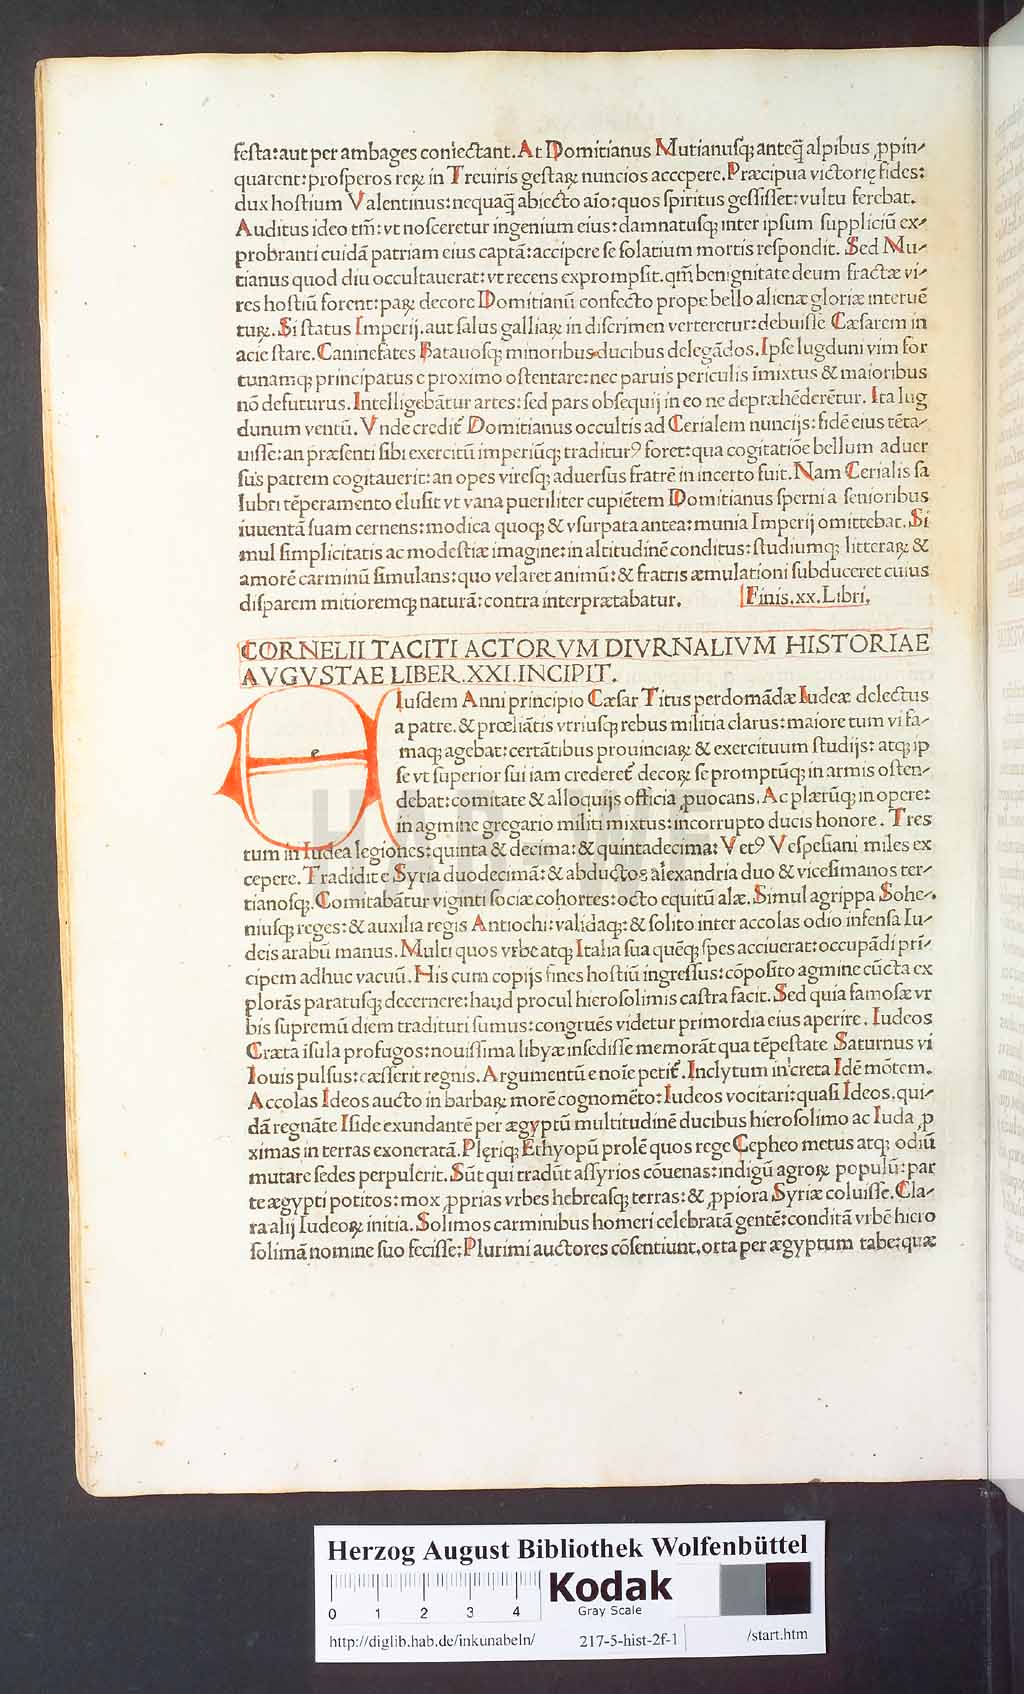 festa: aut per ambages coniectant. At Domitianus Mutianusq; anteq̃ alpibus ꝓpin-
quarent: prosperos rerꝝ in Treuiris gestaꝝ nuncios accepere. Præcipua victorię fides:
dux hostium Valentinus: nequaq̃ abiecto aĩo: quos spiritus gessisset: vultu ferebat.
Auditus ideo tm̃: vt nosceretur ingenium eius: damnatusq; inter ipsum suppliciũ ex-
probranti cuidã patriam eius captã: accipere se solatium mortis respondit. Sed Mu-
tianus quod diu occultauerat: vt recens exprompsit. qm̃ benignitate deum fractæ vi-
res hostiũ forent: paꝝ decore Domitianũ confecto prope bello alienæ gloriæ interuẽ
tuꝝ. Si status Imperij. aut salus galliaꝝ in discrimen verteretur: debuisse Cæsarem in
acie stare. Caninefates Batauosq; minoribus ducibus delegãdos. Ipse lugduni vim for
tunamq; principatus e proximo ostentare: nec paruis periculis ĩmixtus & maioribus
nõ defuturus. Intelligebãtur artes: sed pars obsequij in eo ne depræhẽderẽtur. Ita lug
dunum ventũ. Vnde credit̃ Domitianus occultis ad Cerialem nuncijs: fidẽ eius tẽta-
uisse: an præsenti sibi exercitũ imperiũq; traditurꝰ foret: qua cogitatiõe bellum aduer
sus patrem cogitauerit: an opes viresq; aduersus fratrẽ in incerto fuit. Nam Cerialis sa
lubri tẽperamento elusit vt vana pueriliter cupiẽtem Domitianus sperni a senioribus
iuuentã suam cernens: modica quoq; & vsurpata antea: munia Imperij omittebat. Si
mul simplicitatis ac modestiæ imagine: in altitudinẽ conditus: studiumq; litteraꝝ &
amorẽ carminũ simulans: quo velaret animũ: & fratris æmulationi subduceret cuius
disparem mitioremq; naturã: contra interprætabatur. Finis. xx. Libri.
CORNELII TACITI ACTORVM DIVRNALIVM HISTORIAE
AVGVSTAE LIBER. XXI. INCIPIT.
e Iusdem Anni principio Cæsar Titus perdomãdæ Iudeæ delectus
a patre. & prœliãtis vtriusq; rebus militia clarus: maiore tum vi fa-
maq; agebat: certãtibus prouinciaꝝ & exercituum studijs: atq; ip
se vt superior sui iam crederet̃ decoꝝ se promptũq; in armis osten-
debat: comitate & alloquijs officia ꝓuocans. Ac plærũq; in opere:
in agmine gregario militi mixtus: incorrupto ducis honore. Tres
tum in Iudea legiones: quinta & decima: & quintadecima: Vetꝰ Vespesiani miles ex
cepere. Tradidit e Syria duodecimã: & abductos alexandria duo & vicesimanos ter-
tianosq;. Comitabãtur viginti sociæ cohortes: octo equitũ alæ. Simul agrippa Sohe-
niusq; reges: & auxilia regis Antiochi: validaq: & solito inter accolas odio infensa Iu-
deis arabũ manus. Multi quos vrbe atq; Italia sua quẽq; spes acciuerat: occupãdi prĩ-
cipem adhuc vacuũ. His cum copijs fines hostiũ ingressus: cõposito agmine cũcta ex
plorãs paratusq; decernere: haud procul hierosolimis castra facit. Sed quia famosæ vr
bis supremũ diem tradituri sumus: congruẽs videtur primordia eius aperire. Iudeos
Cræta ĩsula profugos: nouissima libyæ insedisse memorãt qua tẽpestate Saturnus vi
Iouis pulsus: cæsserit regnis. Argumentũ e noĩe petit̃. Inclytum in creta Idẽ mõtem.
Accolas Ideos aucto in barbaꝝ morẽ cognomẽto: Iudeos vocitari: quasi Ideos. qui-
dã regnãte Iside exundantẽ per ægyptũ multitudinẽ ducibus hierosolimo ac Iuda ꝓ
ximas in terras exoneratã. Plęriq; Ethyopũ prolẽ quos rege Cepheo metus atq; odiũ
mutare sedes perpulerit. Sũt qui tradũt assyrios cõuenas: indigũ agroꝝ populũ: par
te ægypti potitos: mox ꝓprias vrbes hebreasq; terras: & ꝓpiora Syriæ coluisse. Cla-
ra alij Iudeoꝝ initia. Solimos carminibus homeri celebratã gentẽ: conditã vrbẽ hiero
solimã nomine suo fecisse: Plurimi auctores cõsentiunt. orta per ægyptum tabe: quæ
HAB-WF
Herzog August Bibliothek Wolfenbüttel
0 1 2 3 4
Kodak
Gray Scale
http://diglib.hab.de/inkunabeln/ 217-5-hist-2f-1 /start.htm